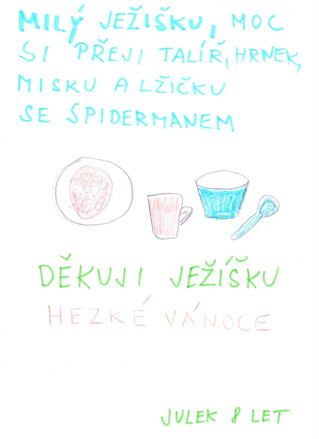 MILÝ JEŽIŠKU, MOC
SI PŘEJI TALÍŘ, HRNEK,
MISKU A LŽIČKU
SE SPIDERMANEM
DĚKUJI JEŽÍŠKU
HEZKÉ VÁNOCE
JULEK 8 LET